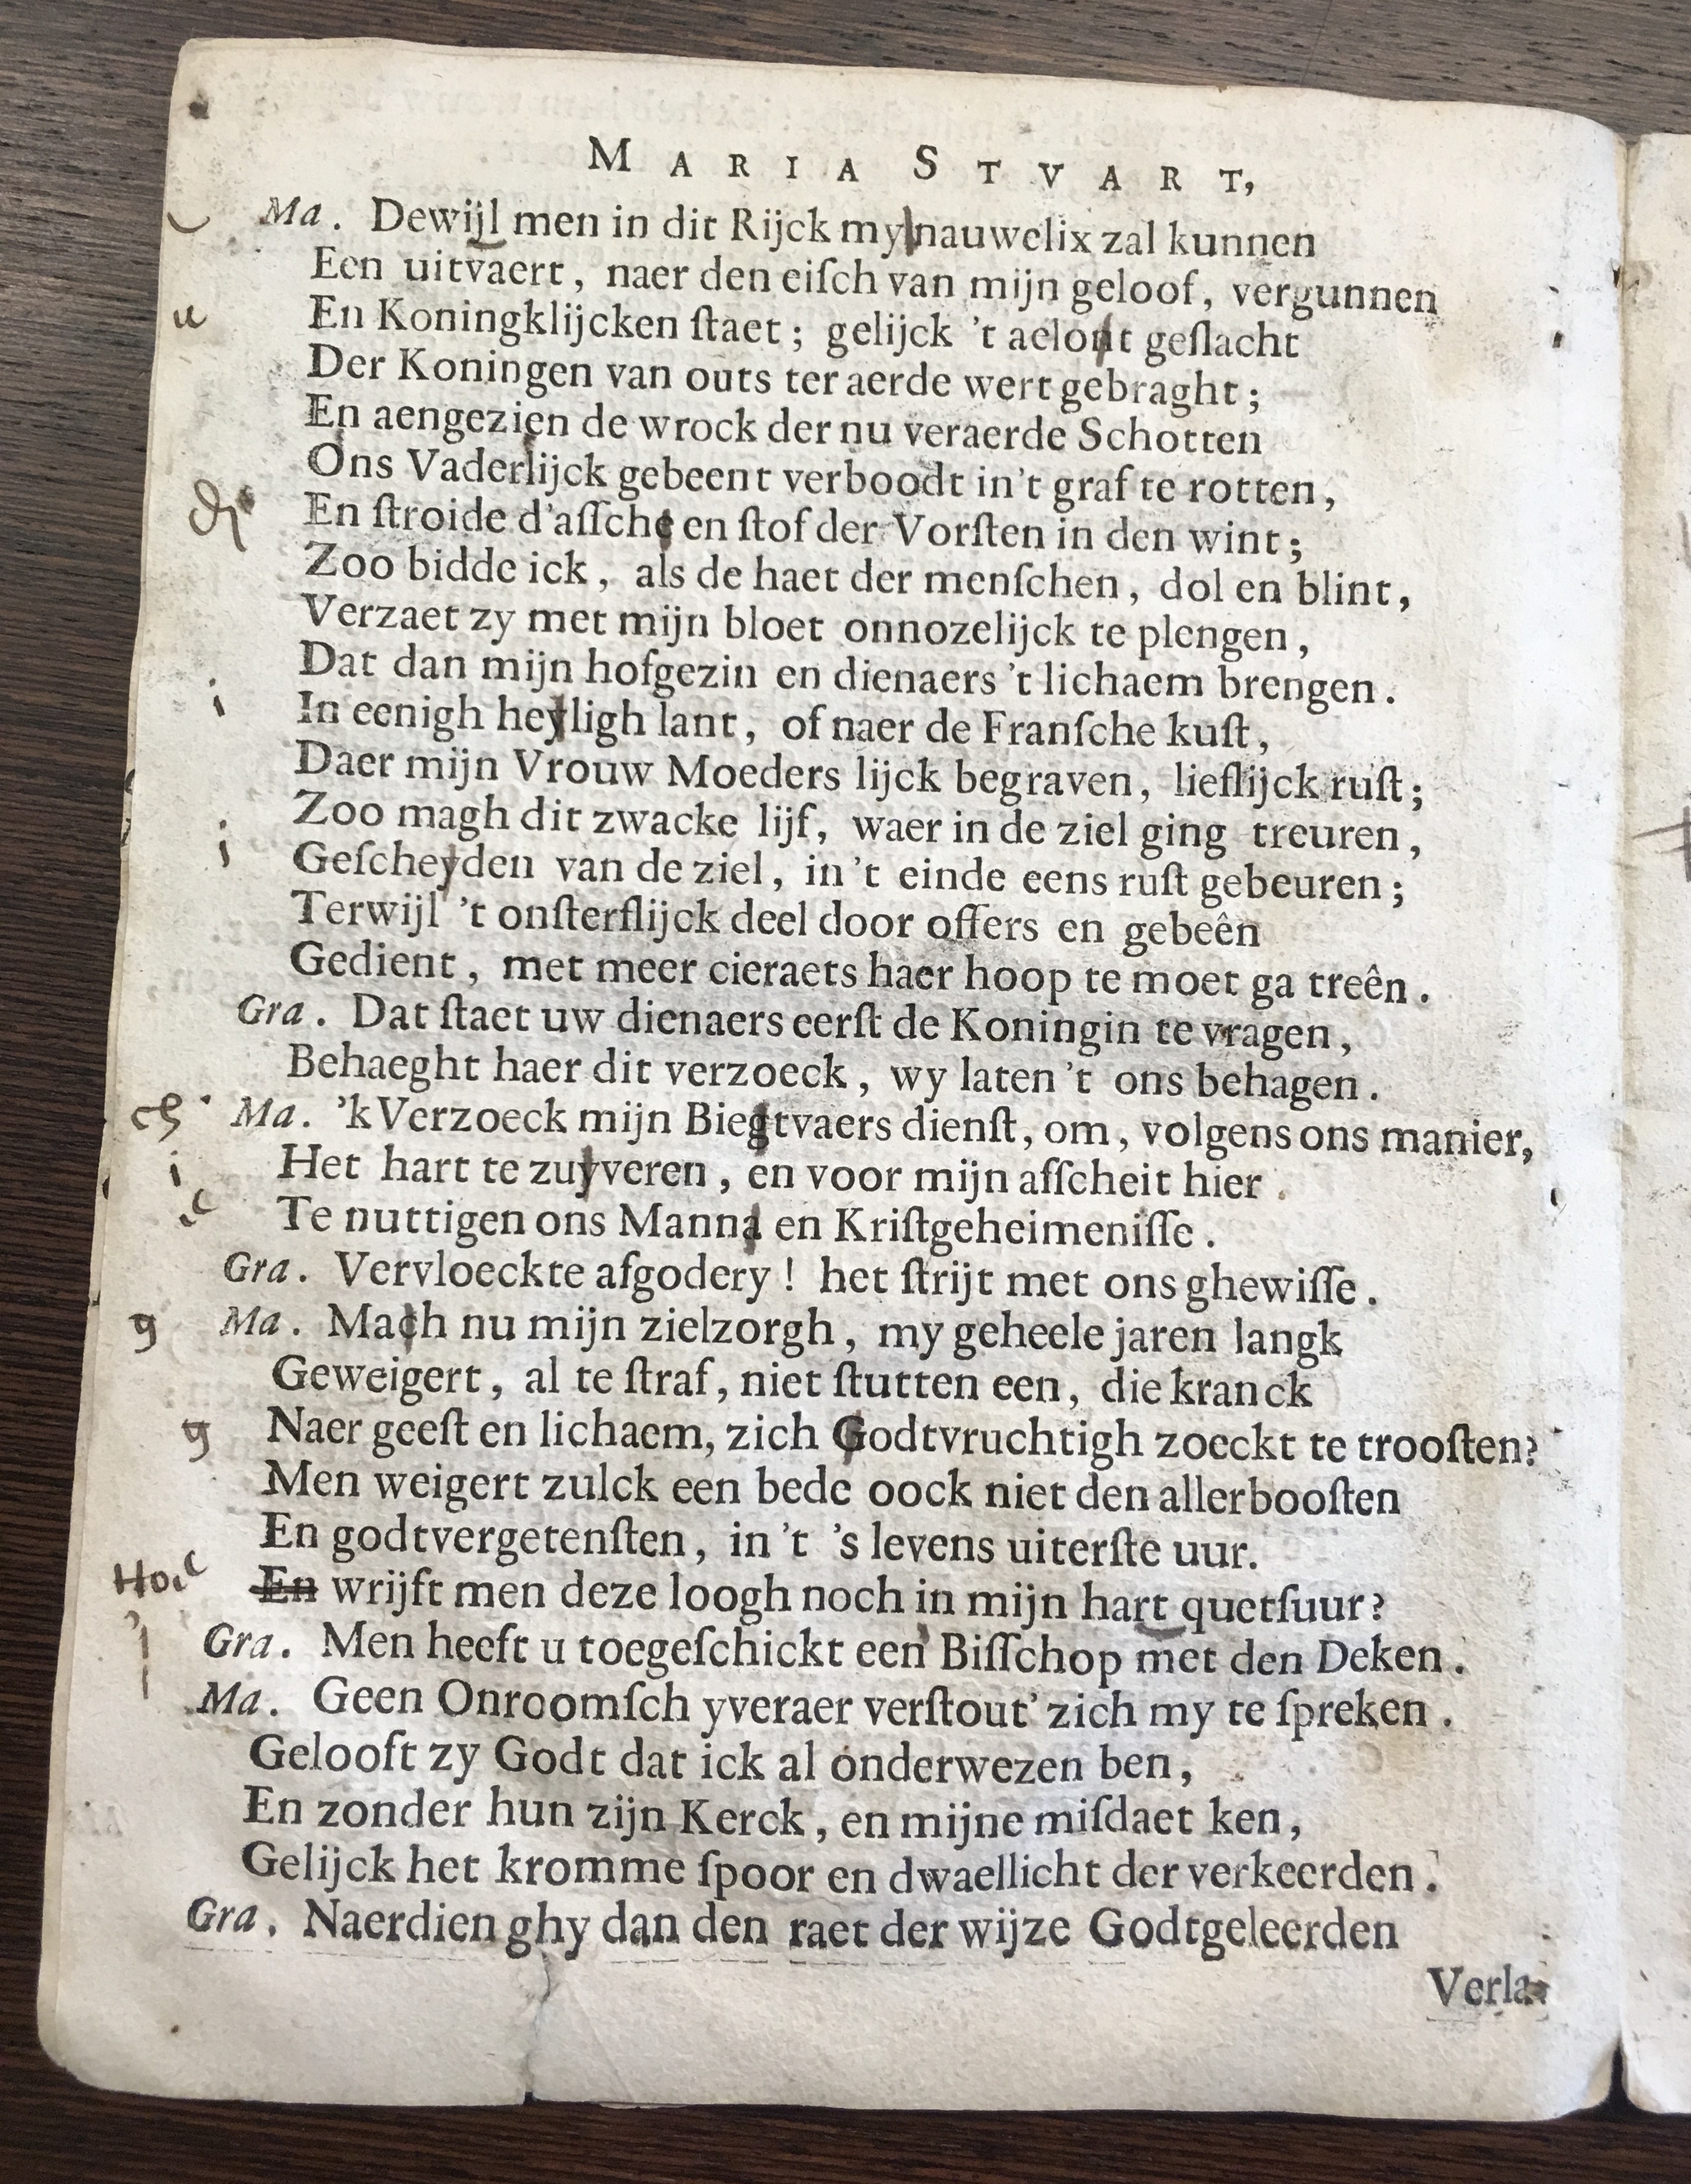 MARIA STVART,
Ma. Dewijl men in dit Rijck my nauwelix zal kunnen
Een uitvaert, naer den eiſch van mijn geloof, vergunnen
u En Koningklijcken ſtaet; gelijck 't aelont geſlacht
Der Koningen van outs ter aerde wert gebraght;
En aengezien de wrock der nu veraerde Schotten
Ons Vaderlijck gebeent verboodt in't graf te rotten,
En ſtroide d'aſſche en ſtof der Vorſten in den wint;
Zoo bidde ick, als de haet der menſchen, dol en blint,
Verzaet zy met mijn bloet onnozelijck te plengen,
Dat dan mijn hofgezin en dienaers 't lichaem brengen.
i In eenigh heyligh lant, of naer de Franſche kuſt,
Daer mijn Vrouw Moeders lijck begraven, lieflijck ruſt;
Zoo magh dit zwacke lijf, waer in de ziel ging treuren,
i Geſcheyden van de ziel, in 't einde eens ruſt gebeuren;
Terwijl 't onſterflijck deel door offers en gebeên
Gedient, met meer cieraets haer hoop te moet ga treên.
Gra. Dat ſtaet uw dienaers eerſt de Koningin te vragen,
Behaeght haer dit verzoeck, wy laten 't ons behagen.
ch Ma. 'k Verzoeck mijn Biegtvaers dienſt, om, volgens ons manier,
i Het hart te zuyveren, en voor mijn afſcheit hier
e Te nuttigen ons Manna en Kriſtgeheimeniſſe.
Gra. Vervloeckte afgodery! het ſtrijt met ons ghewiſſe.
g Ma. Mach nu mijn zielzorgh, my geheele jaren langk
Geweigert, al te ſtraf, niet ſtutten een, die kranck
g Naer geeſt en lichaem, zich Godtvruchtigh zoeckt te trooſten?
Men weigert zulck een bede oock niet den allerbooſten
En godtvergetenſten, in 't 's levens uiterſte uur.
Hoe En wrijft men deze loogh noch in mijn hart quetſuur?
Gra. Men heeft u toegeſchickt een Biſſchop met den Deken.
Ma. Geen Onroomſch yveraer verſtout' zich my te ſpreken.
Gelooft zy Godt dat ick al onderwezen ben,
En zonder hun zijn Kerck, en mijne miſdaet ken,
Gelijck het kromme ſpoor en dwaellicht der verkeerden.
Gra. Naerdien ghy dan den raet der wijze Godtgeleerden
Verla-